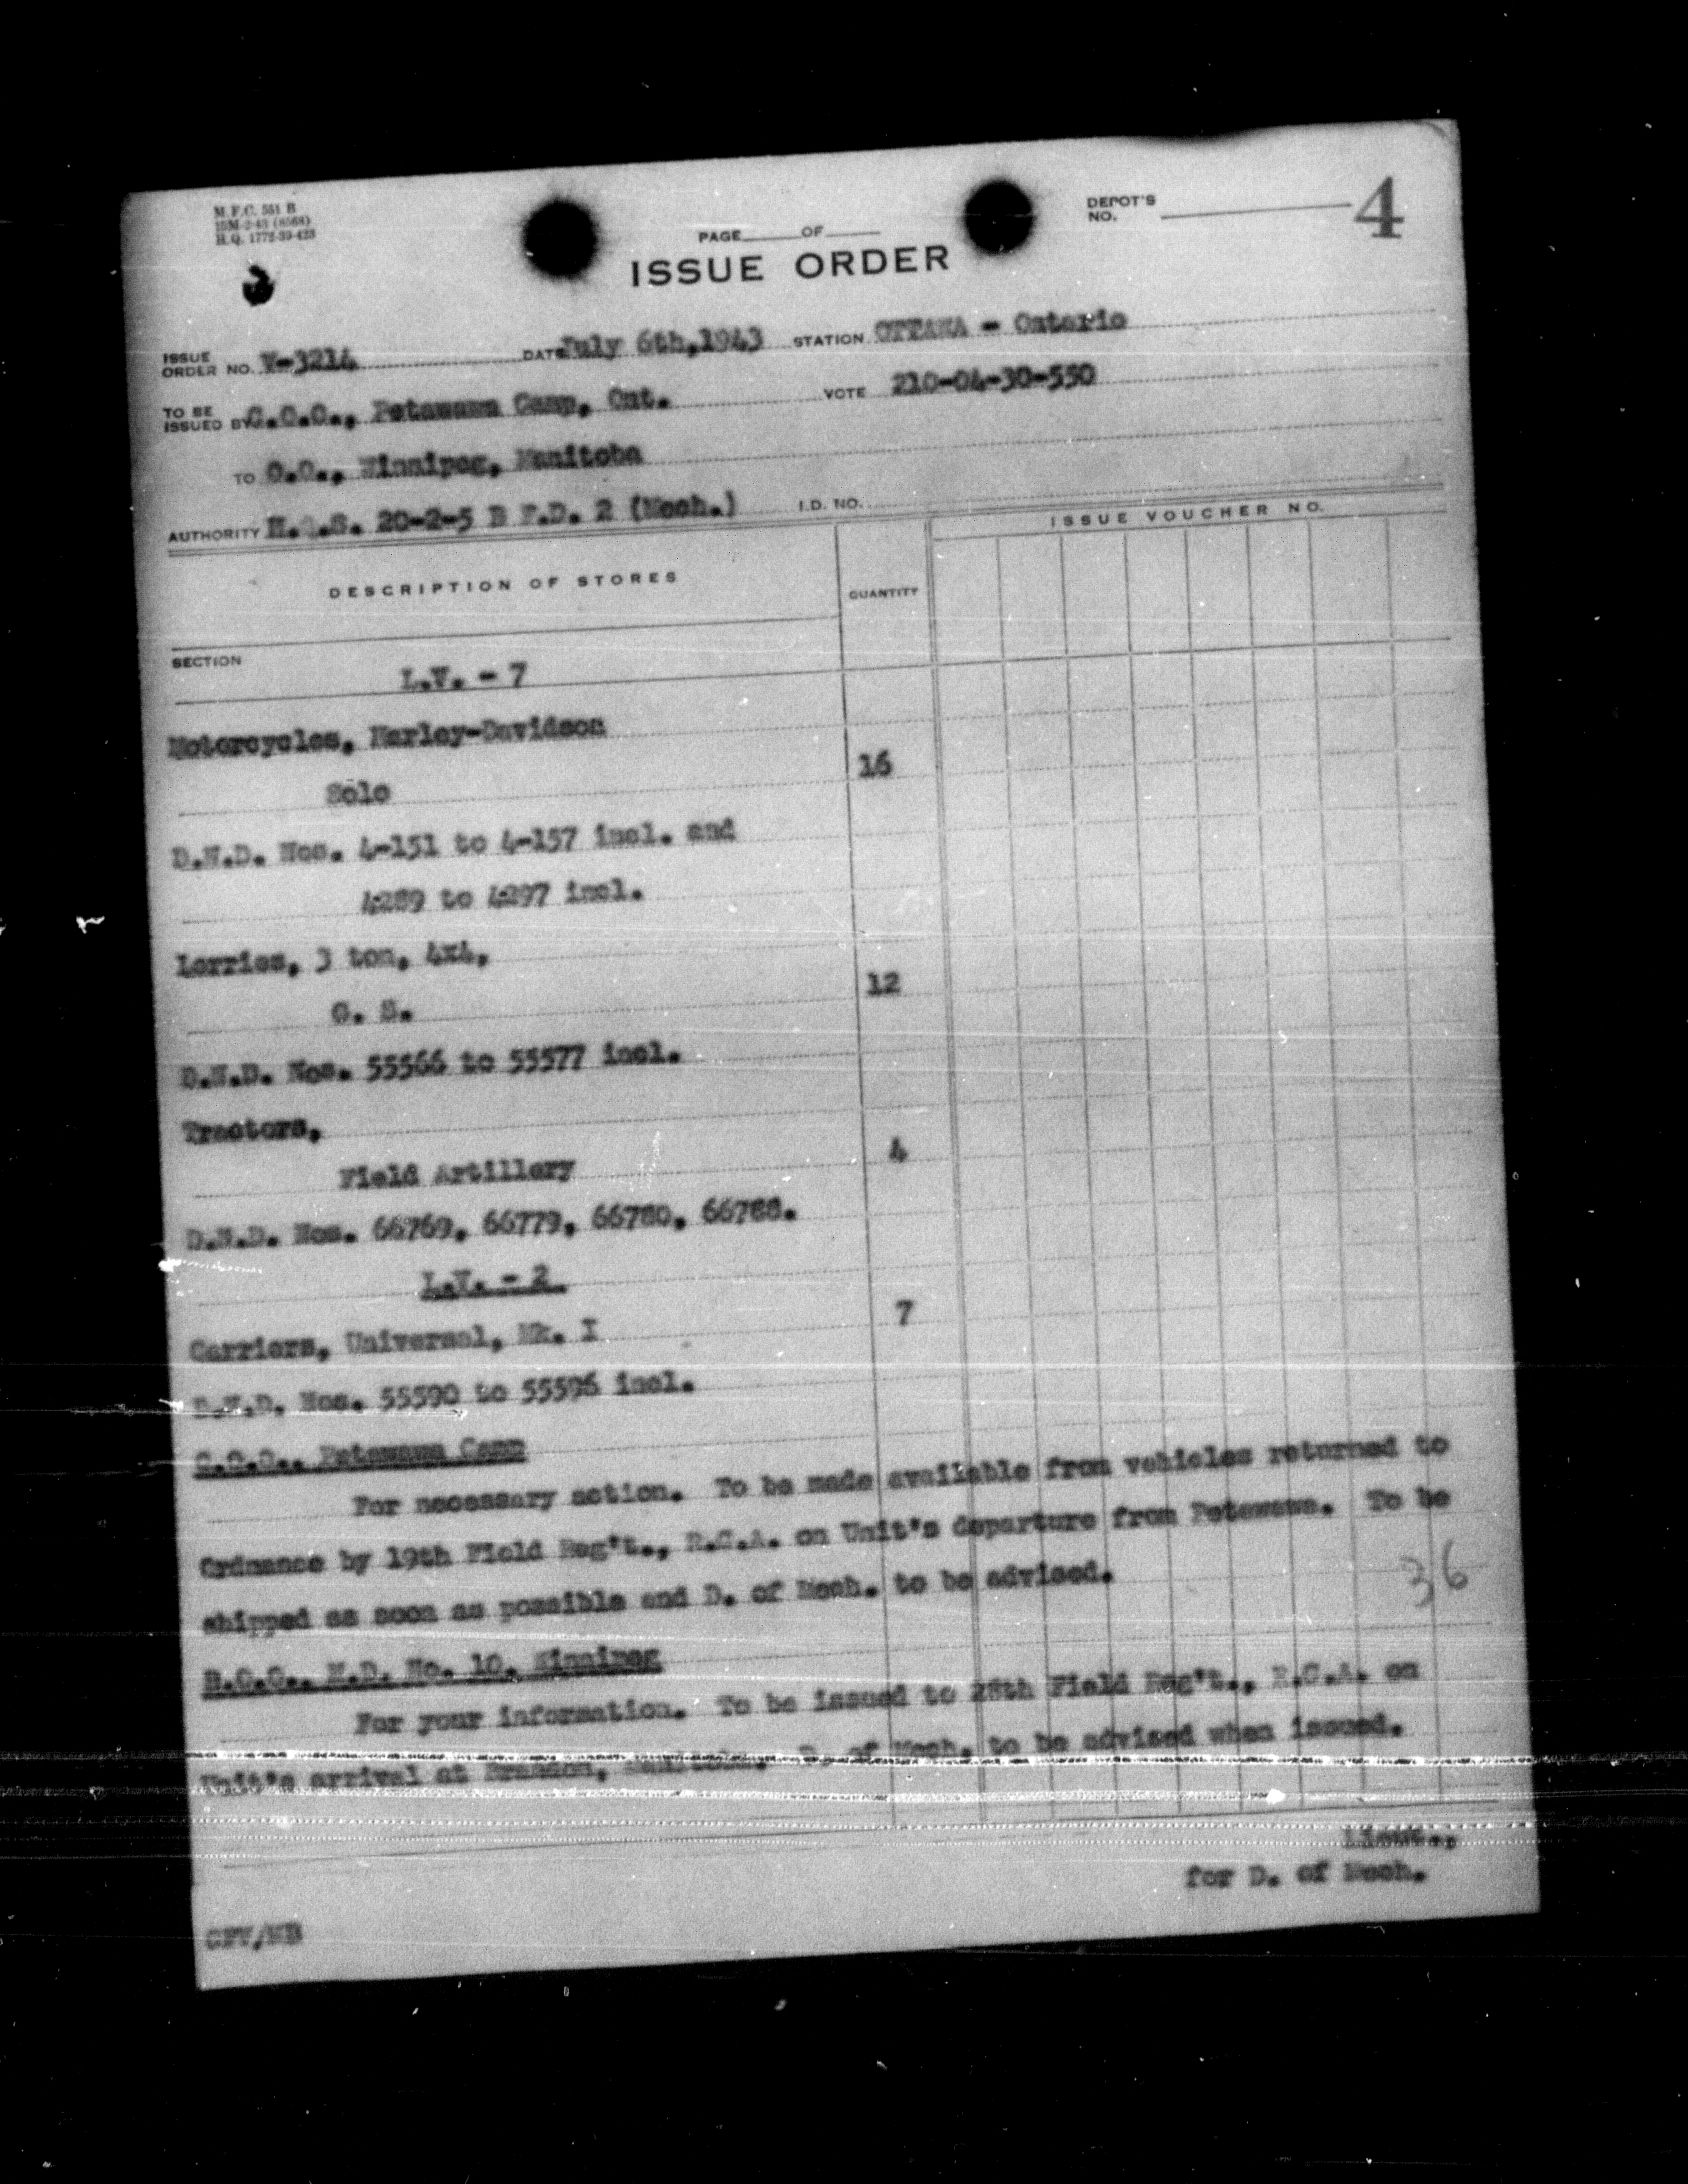 M.F.C. 551 B
H.Q. 1772-39-423
DEPOT'S
NO. 4
PAGE OF
ISSUE ORDER
ISSUE ORDER NO. V-3214 DATE July 6th,1943 STATION OTTAWA - Ontario
TO BE ISSUED BY C.O.O., Petawawa Camp, Ont. VOTE 210-04-30-550
TO O.O., Winnipeg, Manitoba
AUTHORITY H.Q.S. 20-2-5 B F.D. 2 (Mech.) I.D. NO.
ISSUE VOUCHER NO.
DESCRIPTION OF STORES QUANTITY
SECTION
L.V. - 7
Motorcycles, Harley-Davidson
Solo 16
D.N.D. Nos. 4-151 to 4-157 incl. and
4-289 to 4-297 incl.
Lorries, 3 ton, 4x4,
G. S. 12
D.N.D. Nos. 55566 to 55577 incl.
Tractors,
Field Artillery 4
D.N.D. Nos. 66769, 66779, 66780, 66788.
L.V. - 2
Carriers, Universal, Mk. I 7
D.N.D. Nos. 55590 to 55596 incl.
C.O.O., Petawawa Camp
For necessary action. To be made available from vehicles returned to
Ordnance by 19th Field Reg't., R.C.A. on Unit's departure from Petawawa. To be
shipped as soon as possible and D. of Mech. to be advised.
36
D.O.O., M.D. No. 10, Winnipeg
For your information. To be issued to 28th Field Reg't., R.C.A. on
Unit's arrival at Brandon, Manitoba. D. of Mech. to be advised when issued.
Lieut.,
for D. of Mech.